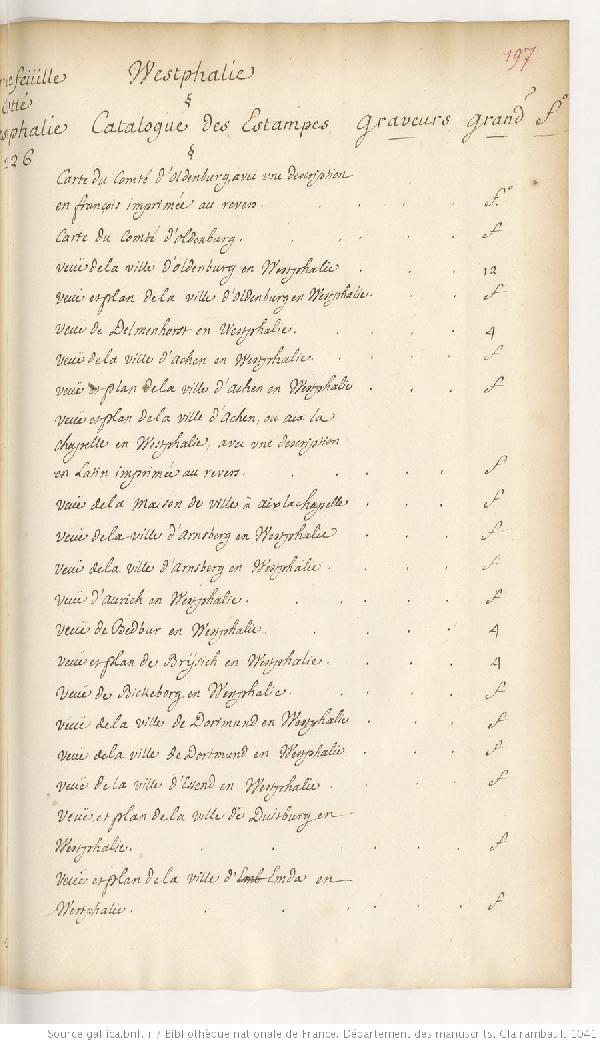 197
Westphalie
§
Catalogue des Estampes Graveurs Grandr fo
§
Carte du Comté d'Oldenburg, avec vne description
en françois imprimée au revers. fo
Carte du Comté d'Oldenburg. f
veüe dela ville d'oldenburg en Westphalie 12
veüe et plan de la ville d'oldenburg en Westphalie. f
veüe de Delmenhorst en Westphalie. 4
veüe dela ville d'achen en Westphalie. f
veüe et plan dela ville d'achen en Westphalie f
veüe et plan dela ville d'Achen, ou aix la
chapelle en Westphalie, avec vne description
en Latin imprimée au revers. f
veüe dela Maison de ville à aix la chapelle f
veüe dela ville d'Arnsberg en Westphalie f
veüe dela ville d'Arnsberg en Westphalie. f
veüe d'aurich en Westphalie. f
veüe de Bedbur en Westphalie. 4
veüe et plan de Brysich en Westphalie. 4
Veüe de Bickeborg en Westphalie. f
veüe dela ville de Dortmund en Westphalie f
veüe dela ville de Dortmund en Westphalie f
veüe de la ville d'Esend en Westphalie f
Veüe et plan dela ville de Duitburg en
Westphalie. f
Veüe et plan dela ville d'Emb Emda en
Westphalie. f
Source gallica.bnf.fr / Bibliothèque nationale de France. Département des manuscrits. Clairambault 1041